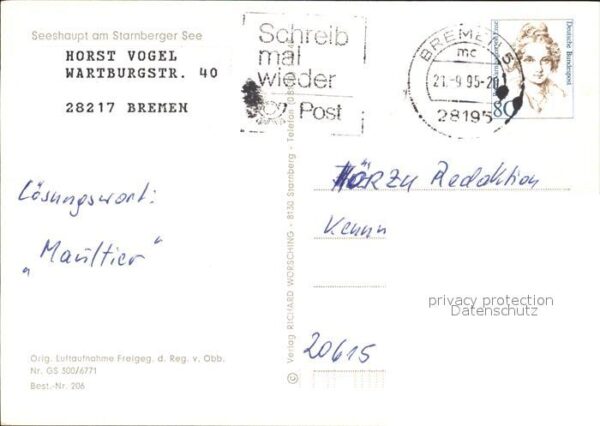 Seeshaupt am Starnberger See
HORST VOGEL
WARTBURGSTR. 40
28217 BREMEN
Schreib
mal
wieder
Post
BREMEN 5
mc
21.-9.95-20
28195
Deutsche Bundespost
80
Lösungswort:
„Maultier“
HÖRZU Redaktion
Kennw
20615
privacy protection
Datenschutz
© Verlag RICHARD WÖRSCHING - 8130 Starnberg - Telefon
Orig. Luftaufnahme Freigeg. d. Reg. v. Obb.
Nr. GS 300/6771
Best.-Nr. 206